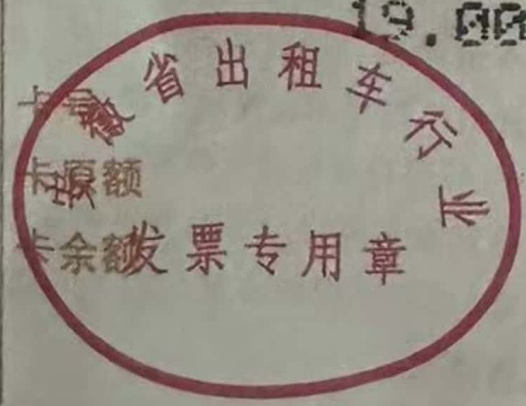 19.00
安徽省出租车行业
卡号
卡原额
卡余额
发票专用章